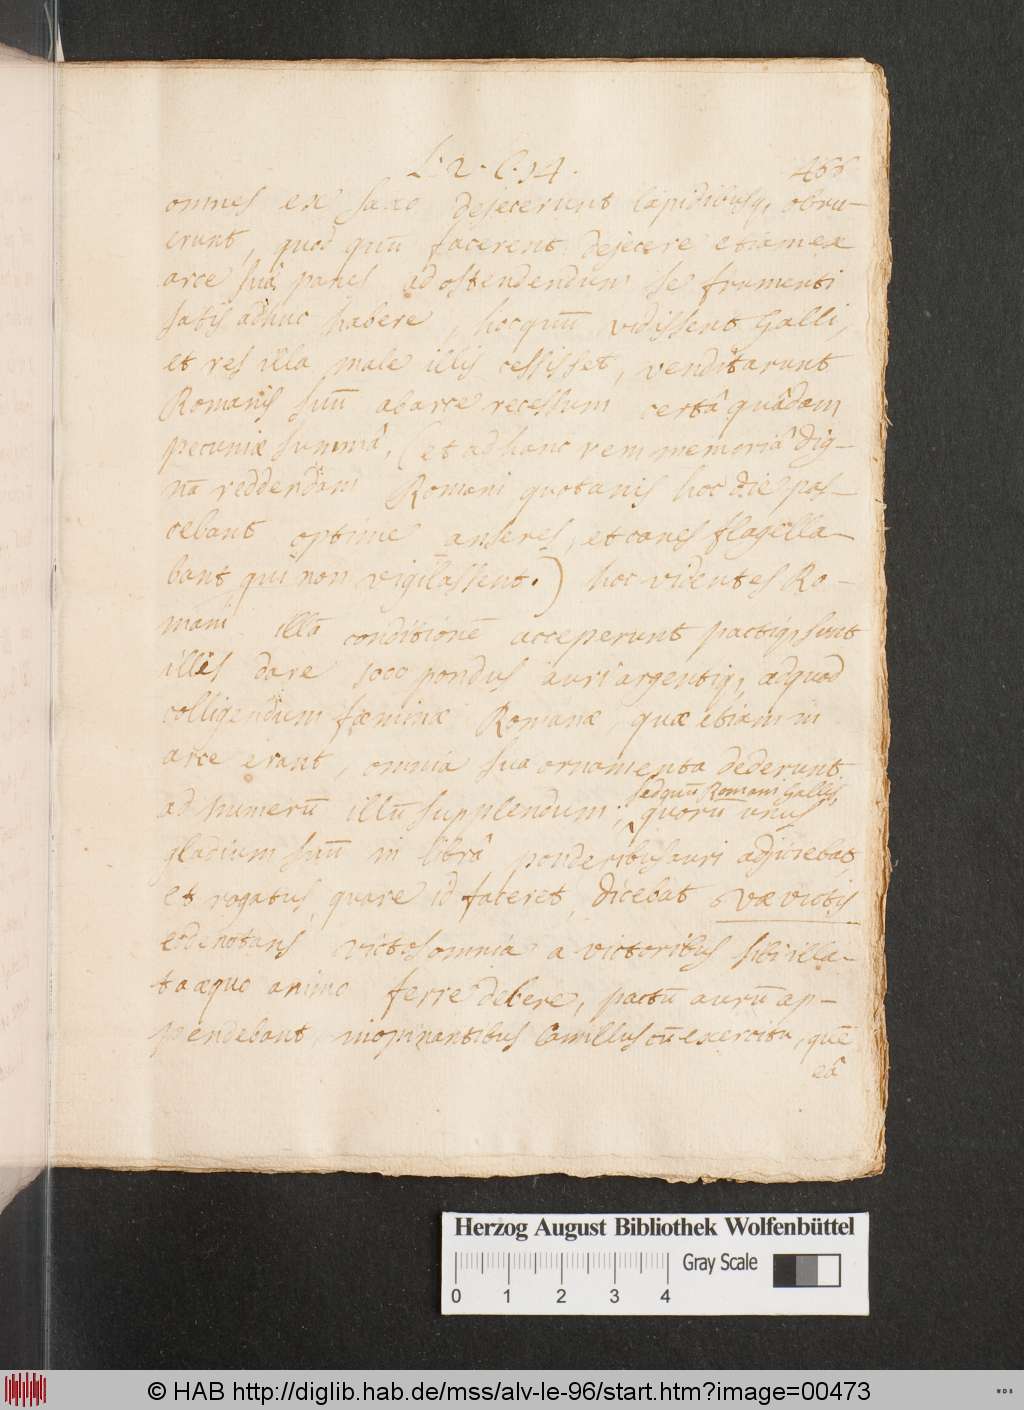 L. 2. C. 14.
466
omnes ex saxo dejecerunt lapidibusq, obru-
erunt, quod quu̅ facerent dejecere etiam ex
arce suâ panes ad ostendendum se frumenti
satis adhuc habere, hoc quu̅ vidissent Galli,
et res illa male illis cessisset, venditarunt
Romanis suu̅ ab arce recessum certâ quâdam
pecuniæ summâ, (et ad hanc rem memoriâ dig-
na̅ reddendam Romani quotanis hoc die pas-
cebant optime anseres, et canes flagella-
bant qui non vigilassent.) hoc videntes Ro-
mani illa̅ conditione̅ acceperunt pactiq, sunt
illis dare 1000 pondus auri argentiq, ad quod
colligendum fæminæ Romanæ quæ etiam in
arce erant, omnia sua ornamenta dederunt
sed quu̅ Romani Gallis,
ad numeru̅ illu̅ supplendum; quoru̅ unus
gladium suu̅ in librâ ponderibus auri adjiciebat,
et rogatus, quare id faceret, dicebat væ victis
eo denotans victos omnia a victoribus sibi illa-
ta æquo animo ferre debere, pactu̅ auru̅ ap-
pendebant, inopinantibus Camillus cu̅ exercitu, que̅
eâ
Herzog August Bibliothek Wolfenbüttel
0 1 2 3 4
Gray Scale
© HAB http://diglib.hab.de/mss/alv-le-96/start.htm?image=00473